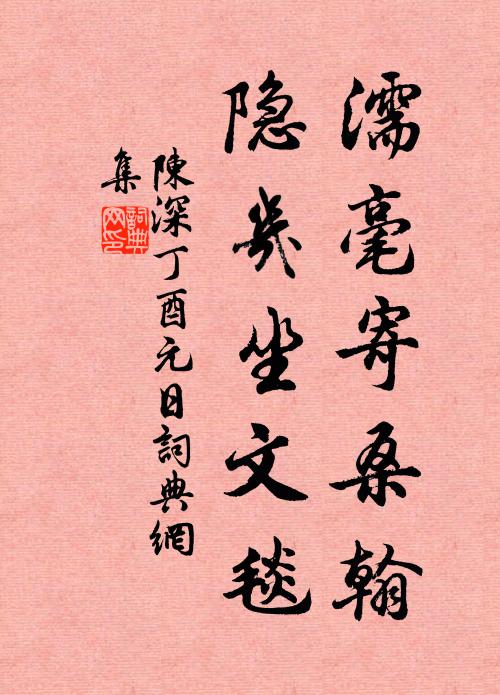 濡毫寄桑翰
隐几坐文毯
陳深丁酉元日詞典網
集
詞典
网印